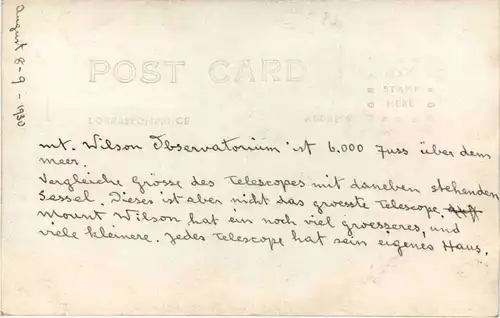 August 8-9-1930
POST CARD
CORRESPONDENCE
ADDRESS
STAMP
HERE
Mt. Wilson Observatorium ist 6.000 Fuss über dem
meer.
Vergleiche Grösse des Telescopes mit daneben stehenden
Sessel. Dieses ist aber nicht das groesste Telescope. auf
Mount Wilson, hat ein noch viel groesseres, und
viele kleinere. Jedes Telescope hat sein eigenes Haus.